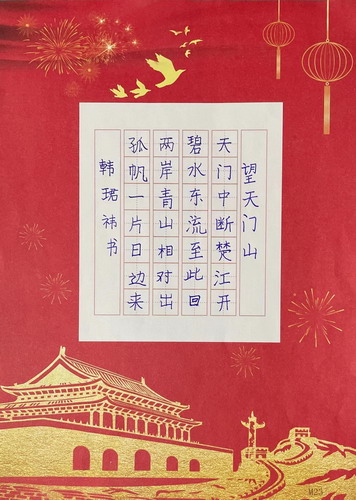 望天门山
天门中断楚江开
碧水东流至此回
两岸青山相对出
孤帆一片日边来
韩珺祎书
M23